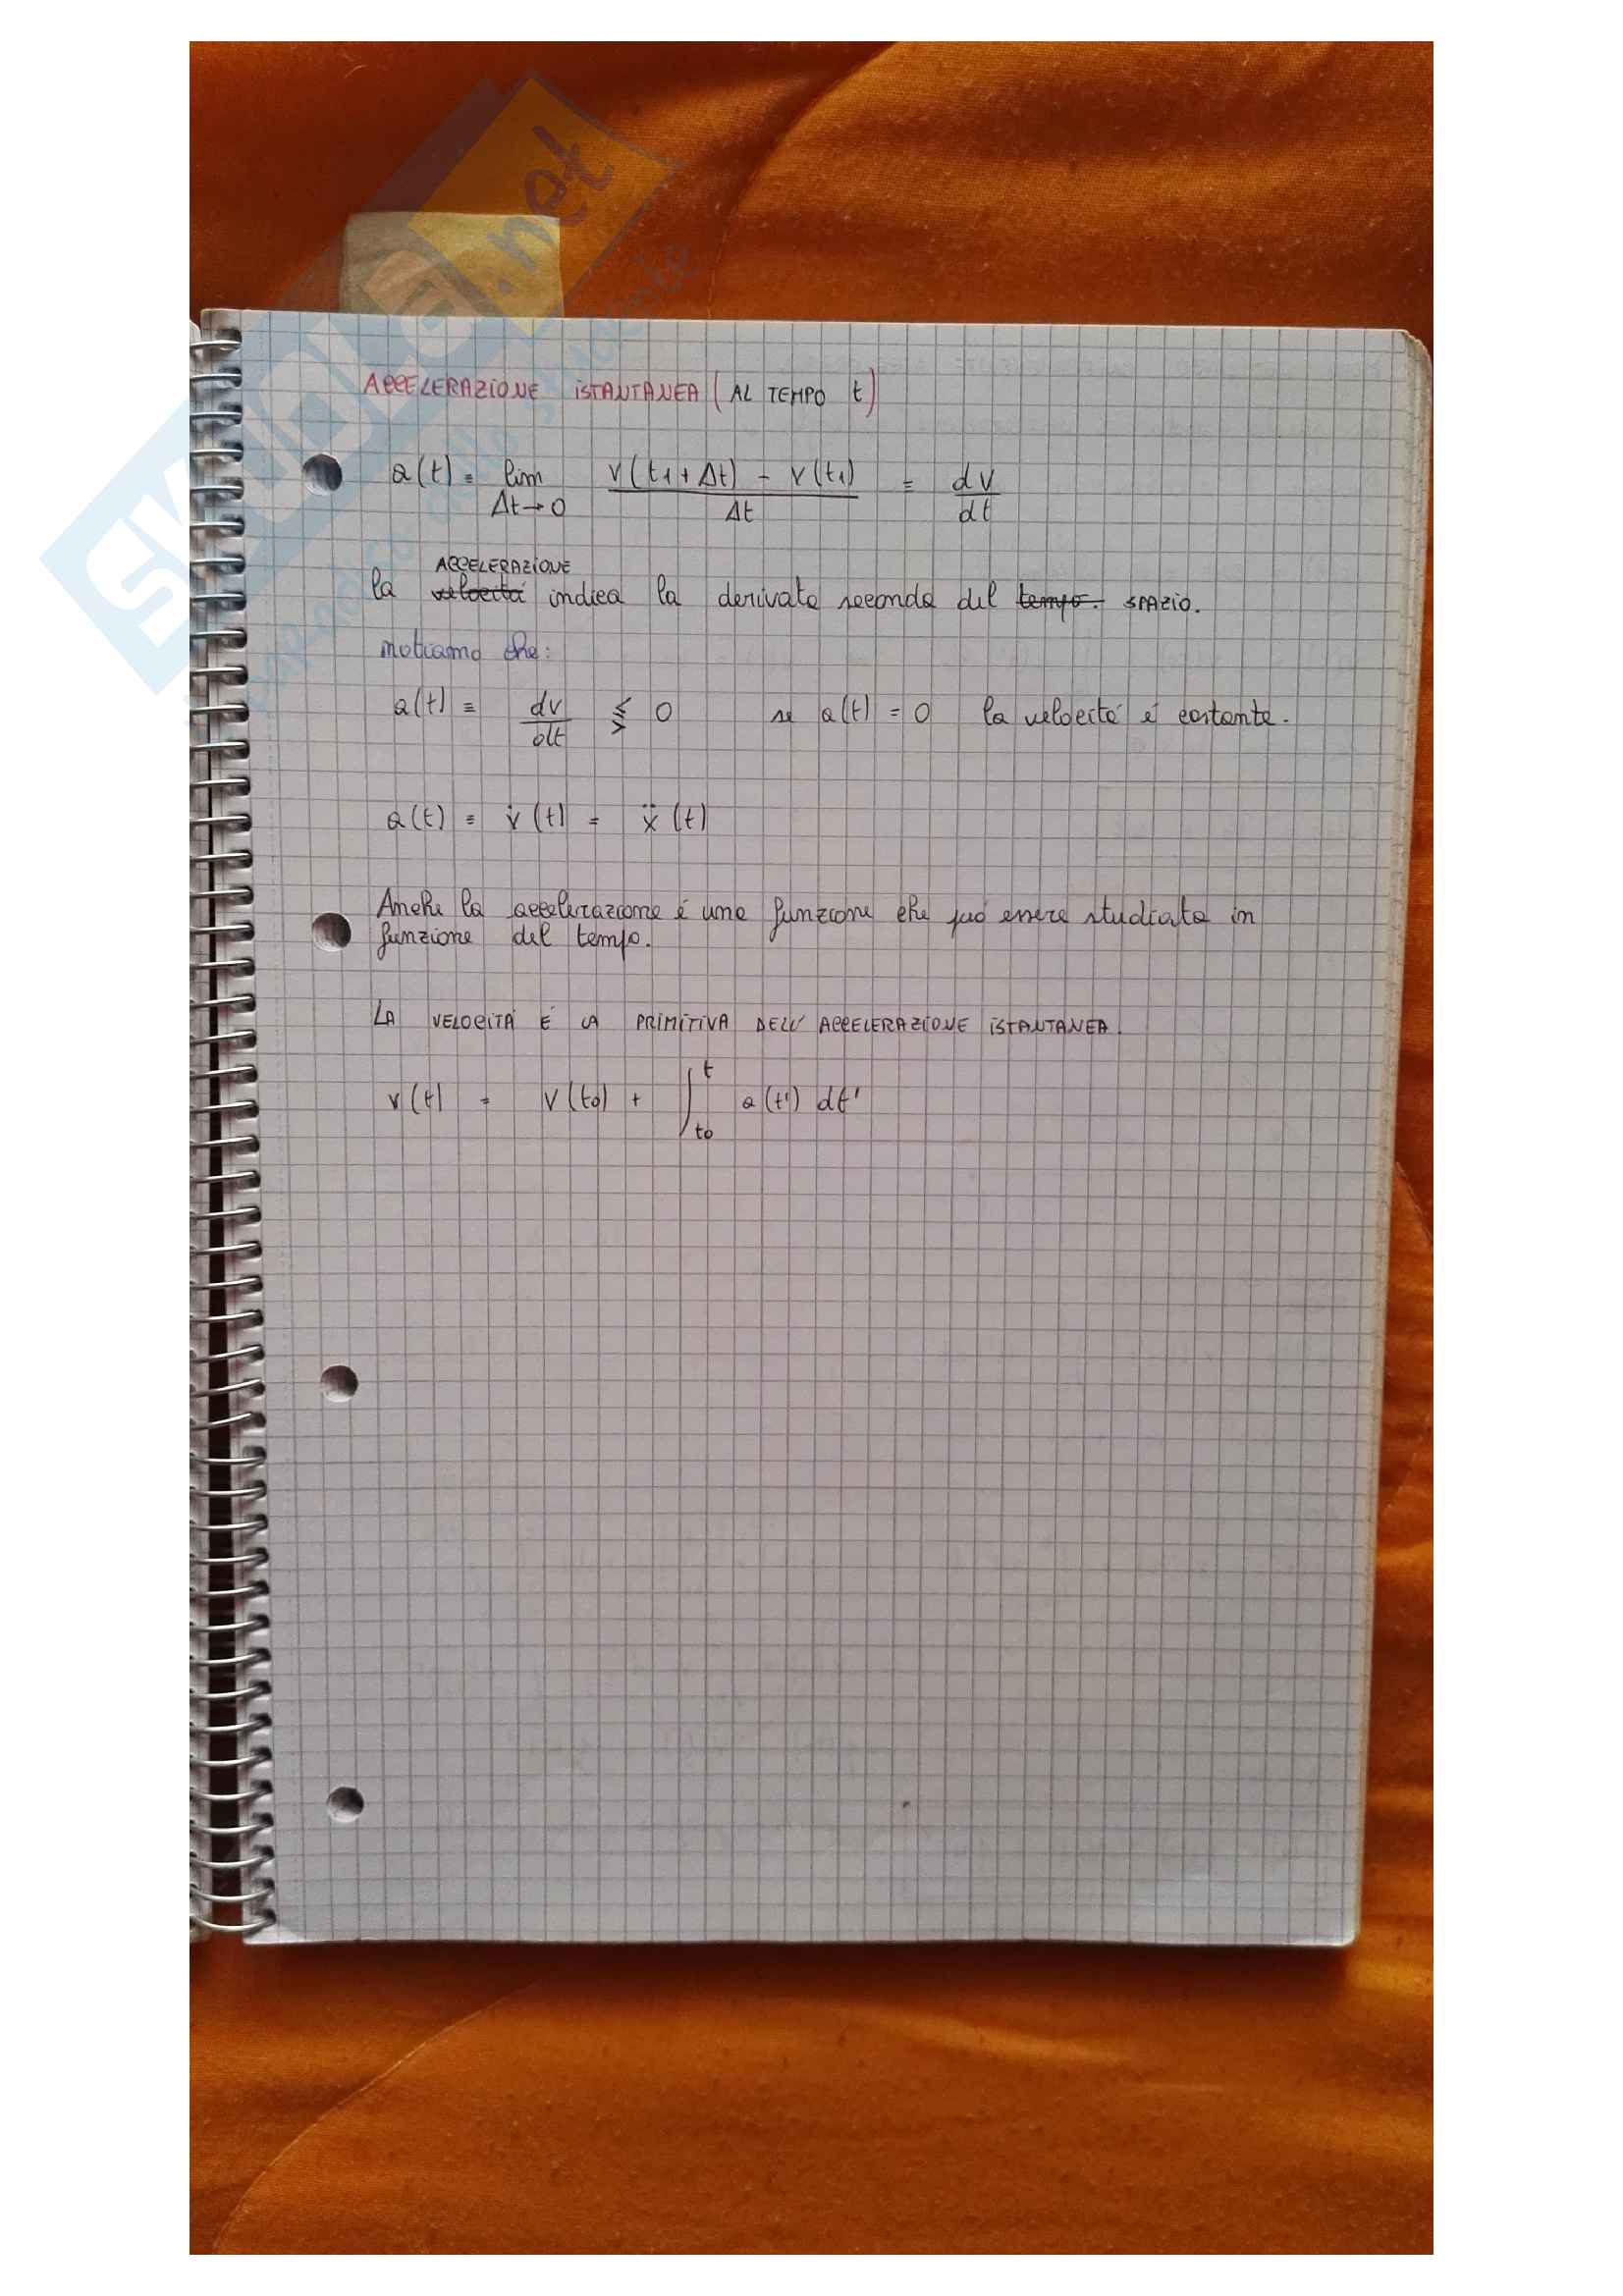 ACCELERAZIONE ISTANTANEA (AL TEMPO t)
a(t) = lim Δt→0 v(t1+Δt) - v(t1) / Δt = dv/dt
ACCELERAZIONE
la velocitá indica la derivata seconda del tempo. SPAZIO.
notiamo che:
a(t) = dv/dt ⪋ 0 se a(t) = 0 la velocitá é costante.
a(t) = v̇(t) = ẍ(t)
Anche la accelerazione é una funzione che puó essere studiata in
funzione del tempo.
LA VELOCITÁ É LA PRIMITIVA DELL'ACCELERAZIONE ISTANTANEA.
v(t) = v(t0) + ∫ t0 t a(t') dt'
SKUOLA.net